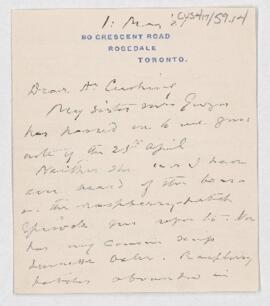 1: May '27
CUS417/59.14
80 CRESCENT ROAD
ROSEDALE
TORONTO.
Dear Dr Cushing
My sister Mrs Gwyn
has passed on to me your
note of the 23rd April
Neither she nor I have
ever heard of the bears
in the raspberry patch
episode you refer to. Nor
has my cousin Miss
Jennette Osler. Raspberry
patches abounded in